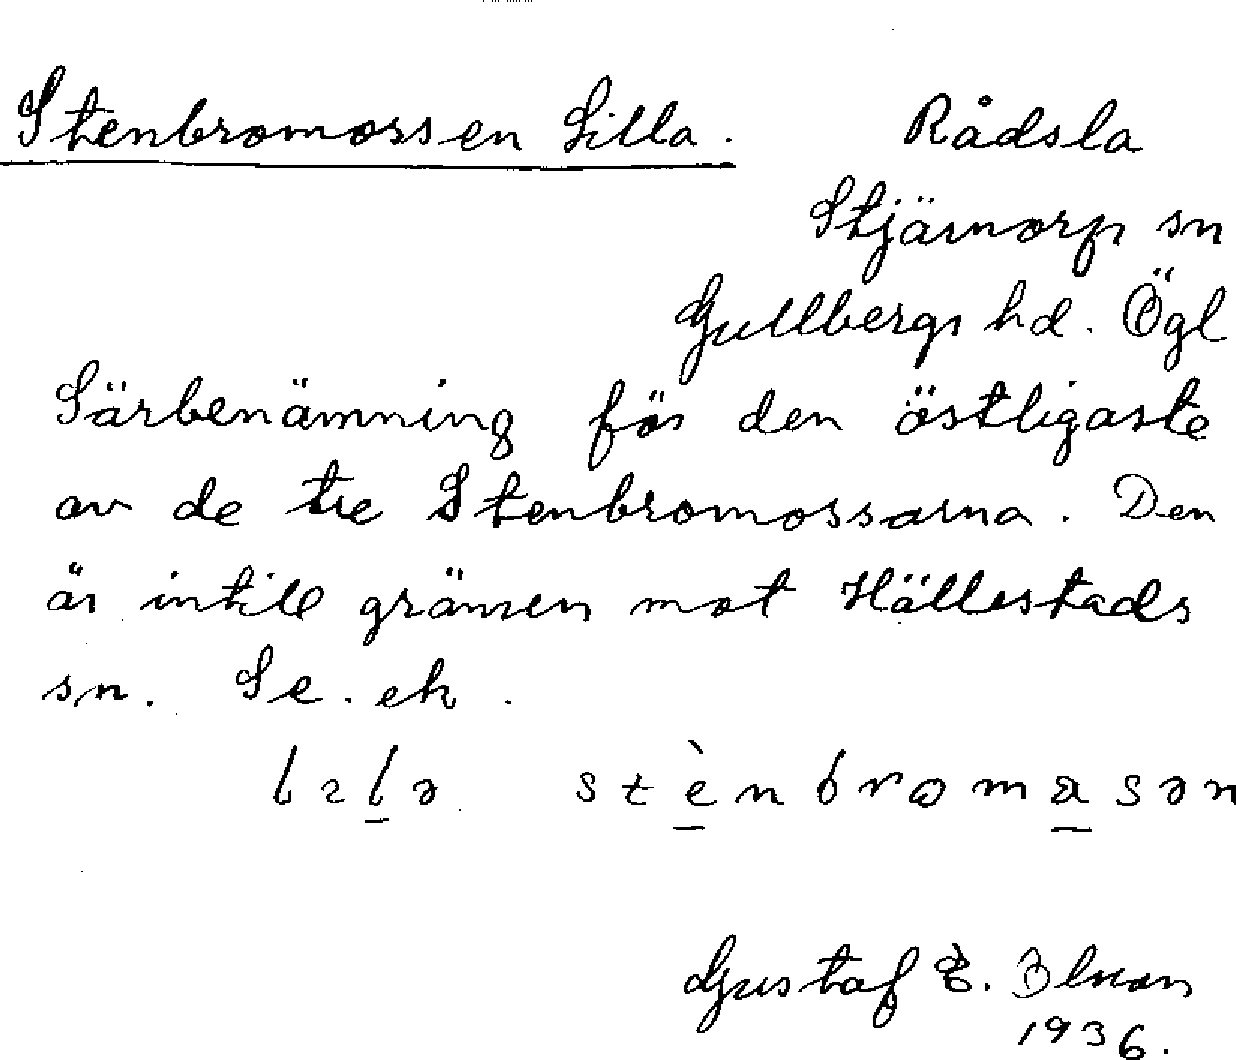 Stenbromossen Lilla. Rådsla
Stjärnorp sn
Gullbergs hd. Ögl
Särbenämning för den östligaste
av de tre Stenbromossarna. Den
är intill gränsen mot Hällestads
sn. Se. ek.
stènbromasən
Gustaf E.
1936.